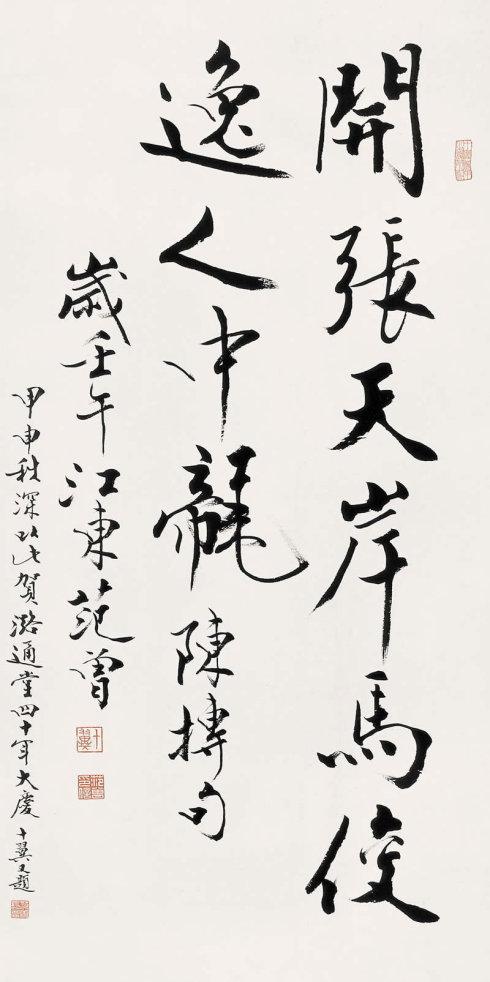 開張天岸馬俊
逸人中龍 陳摶句
歲壬午江東范曾
十翼
甲申秋深以此賀潞通堂四十年大慶 十翼又題